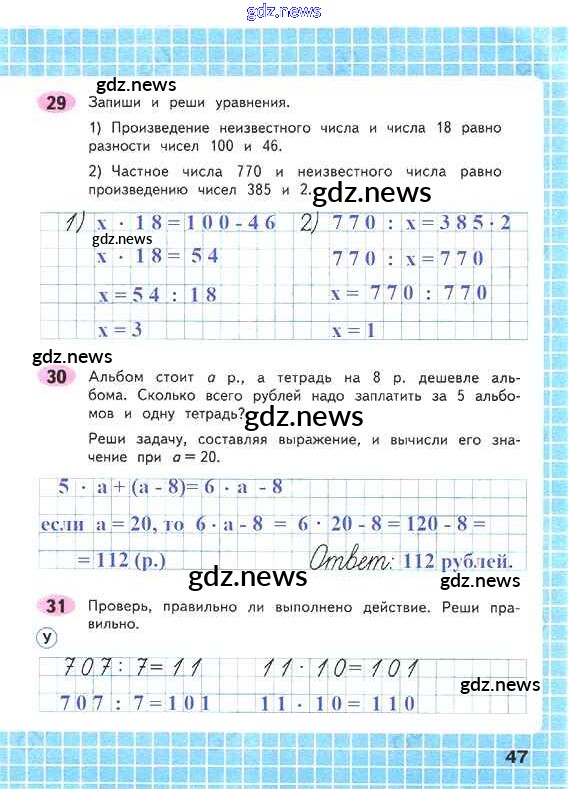 gdz.news
gdz.news
29 Запиши и реши уравнения.
1) Произведение неизвестного числа и числа 18 равно
разности чисел 100 и 46.
2) Частное числа 770 и неизвестного числа равно
произведению чисел 385 и 2.
gdz.news
1) x · 18 = 100 - 46 2) 770 : x = 385 · 2
gdz.news
x · 18 = 54 770 : x = 770
x = 54 : 18 x = 770 : 770
x = 3 x = 1
gdz.news
30 Альбом стоит а р., а тетрадь на 8 р. дешевле аль-
бома. Сколько всего рублей надо заплатить за 5 альбо-
мов и одну тетрадь?
gdz.news
Реши задачу, составляя выражение, и вычисли его зна-
чение при а = 20.
5 · а + (а - 8) = 6 · а - 8
если а = 20, то 6 · а - 8 = 6 · 20 - 8 = 120 - 8 =
= 112 (р.) Ответ: 112 рублей.
gdz.news
gdz.news
31 Проверь, правильно ли выполнено действие. Реши пра-
вильно.
У
707 : 7 = 11 11 · 10 = 101
gdz.news
707 : 7 = 101 11 · 10 = 110
47
gdz.news